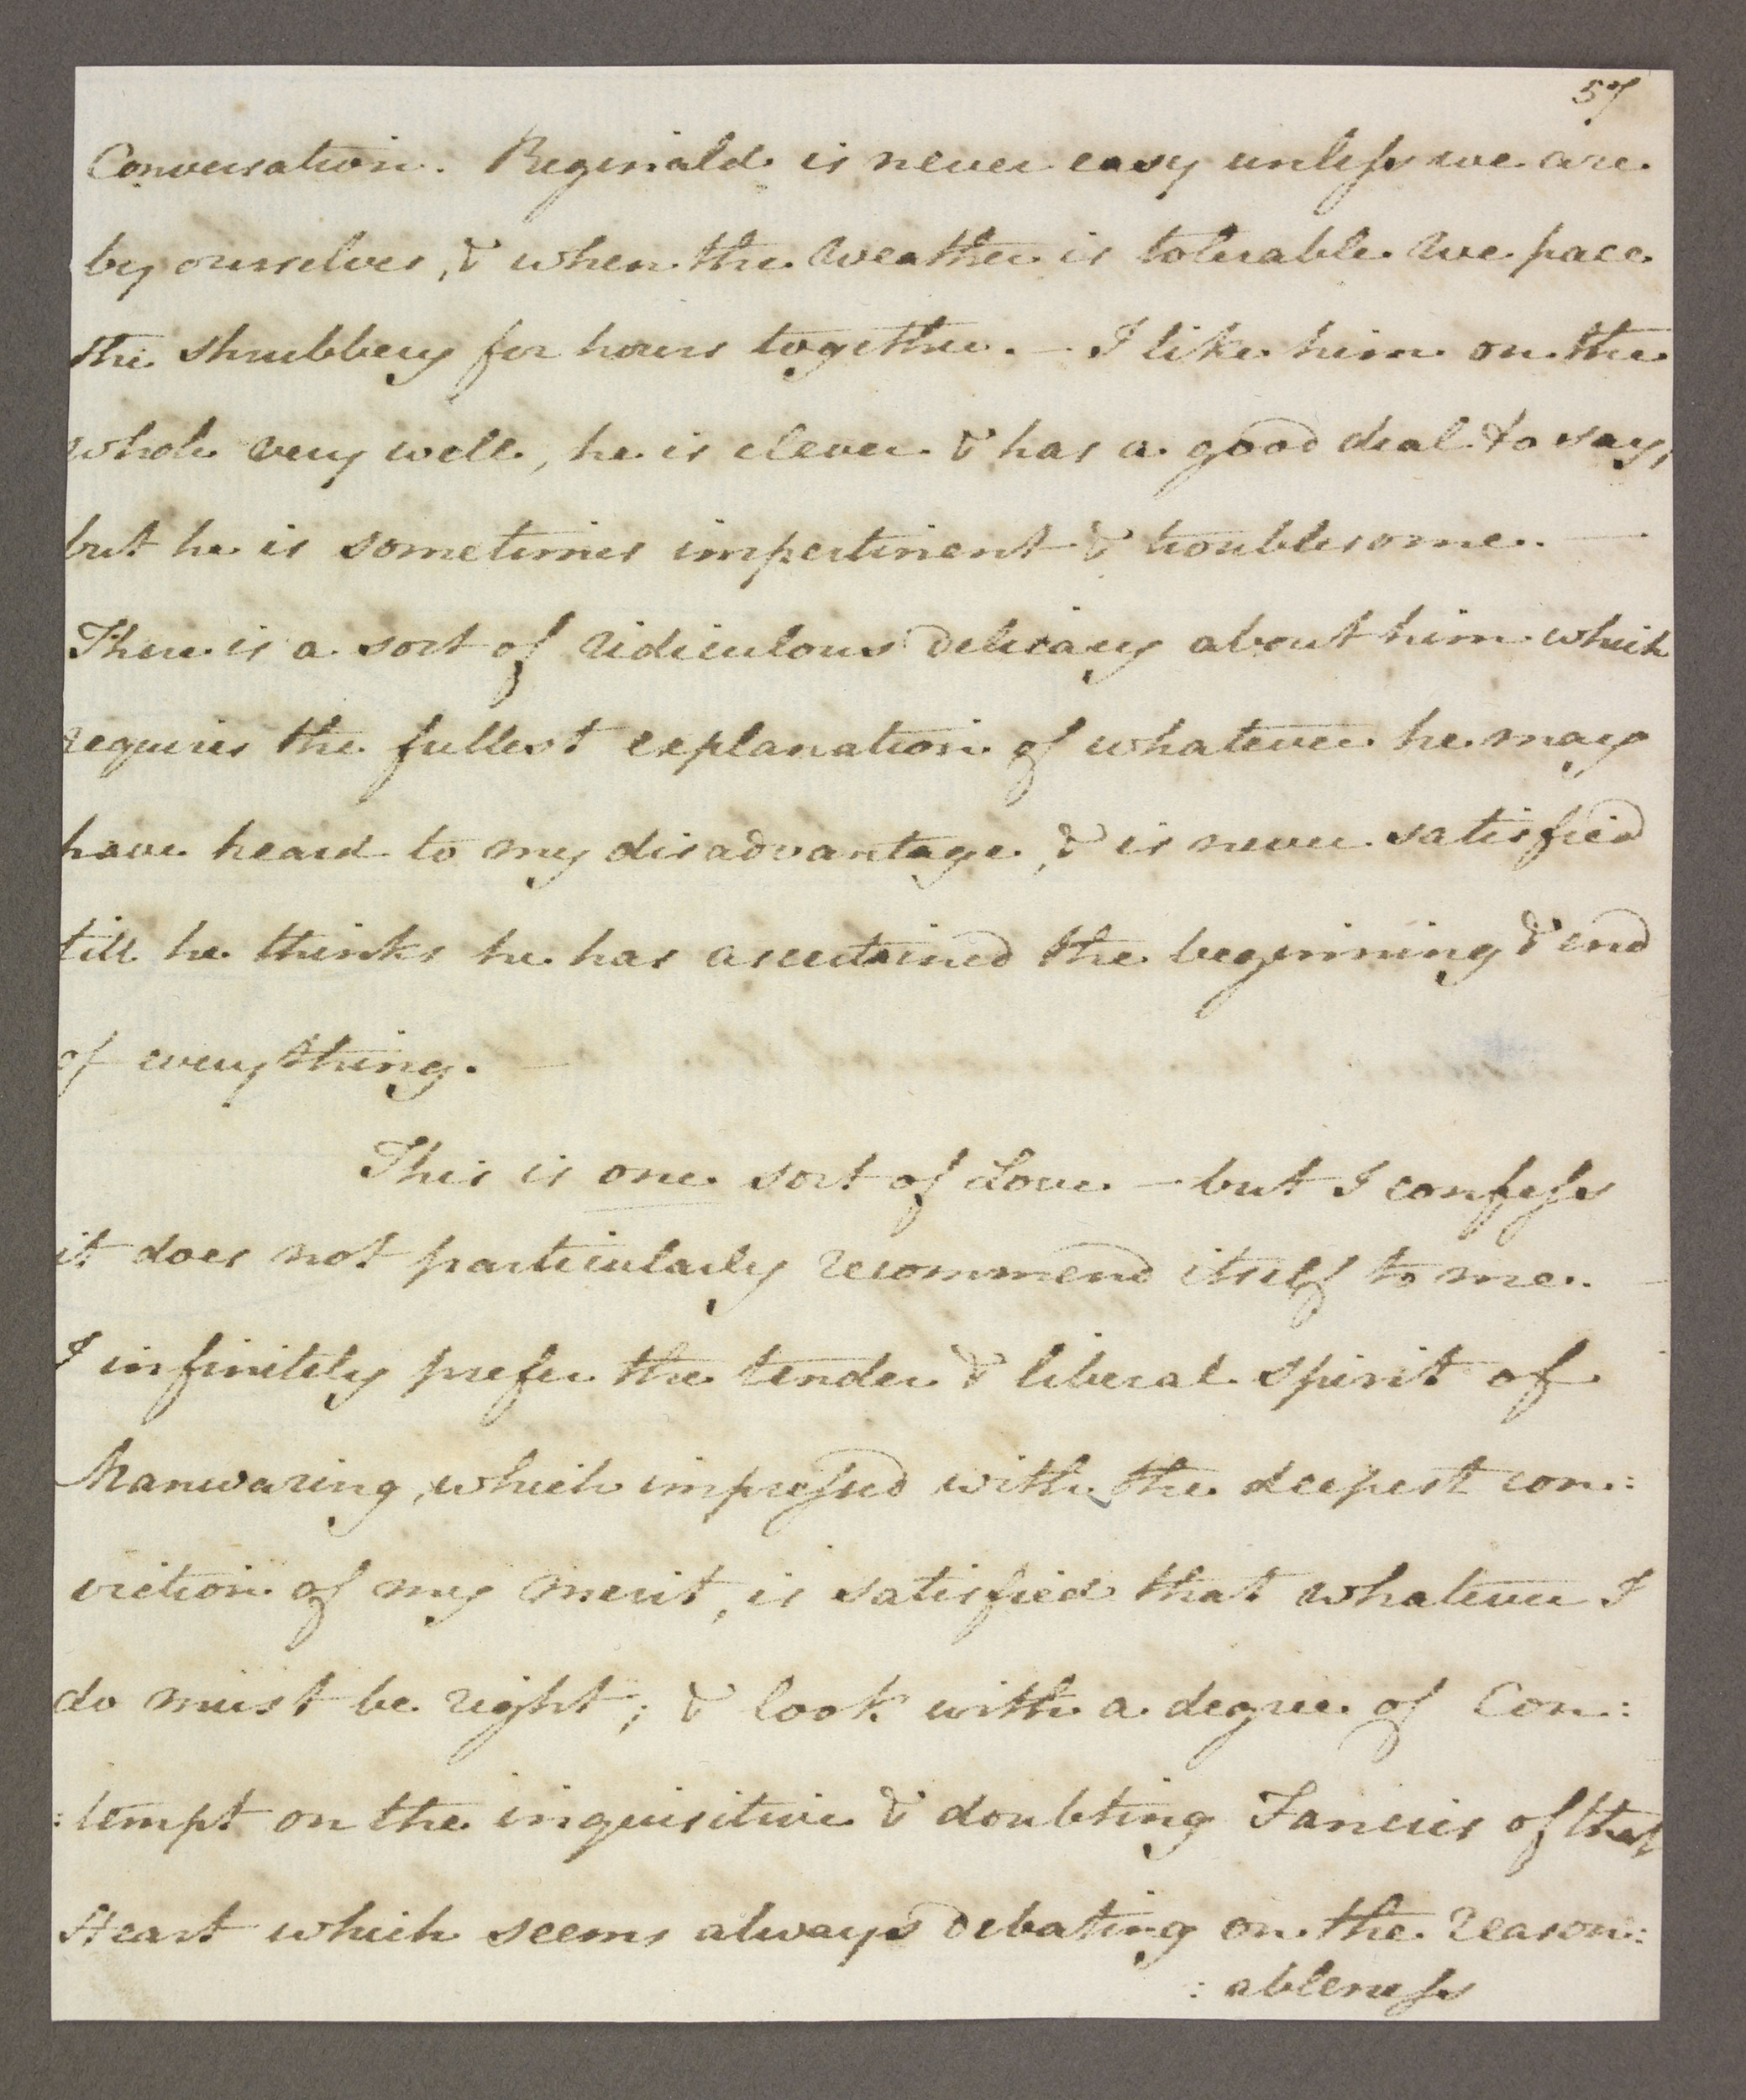 57
Conversation. Reginald is never easy unless we are
by ourselves, & when the weather is tolerable we pace
the shrubbery for hours together. – I like him on the
whole very well, he is clever & has a good deal to say,
but he is sometimes impertinent & troublesome. —
There is a sort of ridiculous delicacy about him which
requires the fullest explanation of whatever he may
have heard to my disadvantage, & is never satisfied
till he thinks he has ascertained the beginning & end
of everything. —
This is one sort of Love. – but I confess
it does not particularly recommend itself to me. —
I infinitely prefer the tender & liberal spirit of
Manwaring, which impressed with the deepest con:
viction of my merit, is satisfied that whatever I
do must be right; & look with a degree of Con:
:tempt on the inquisitive & doubting Fancies of that
Heart which seems always debating on the reason:
:ableness